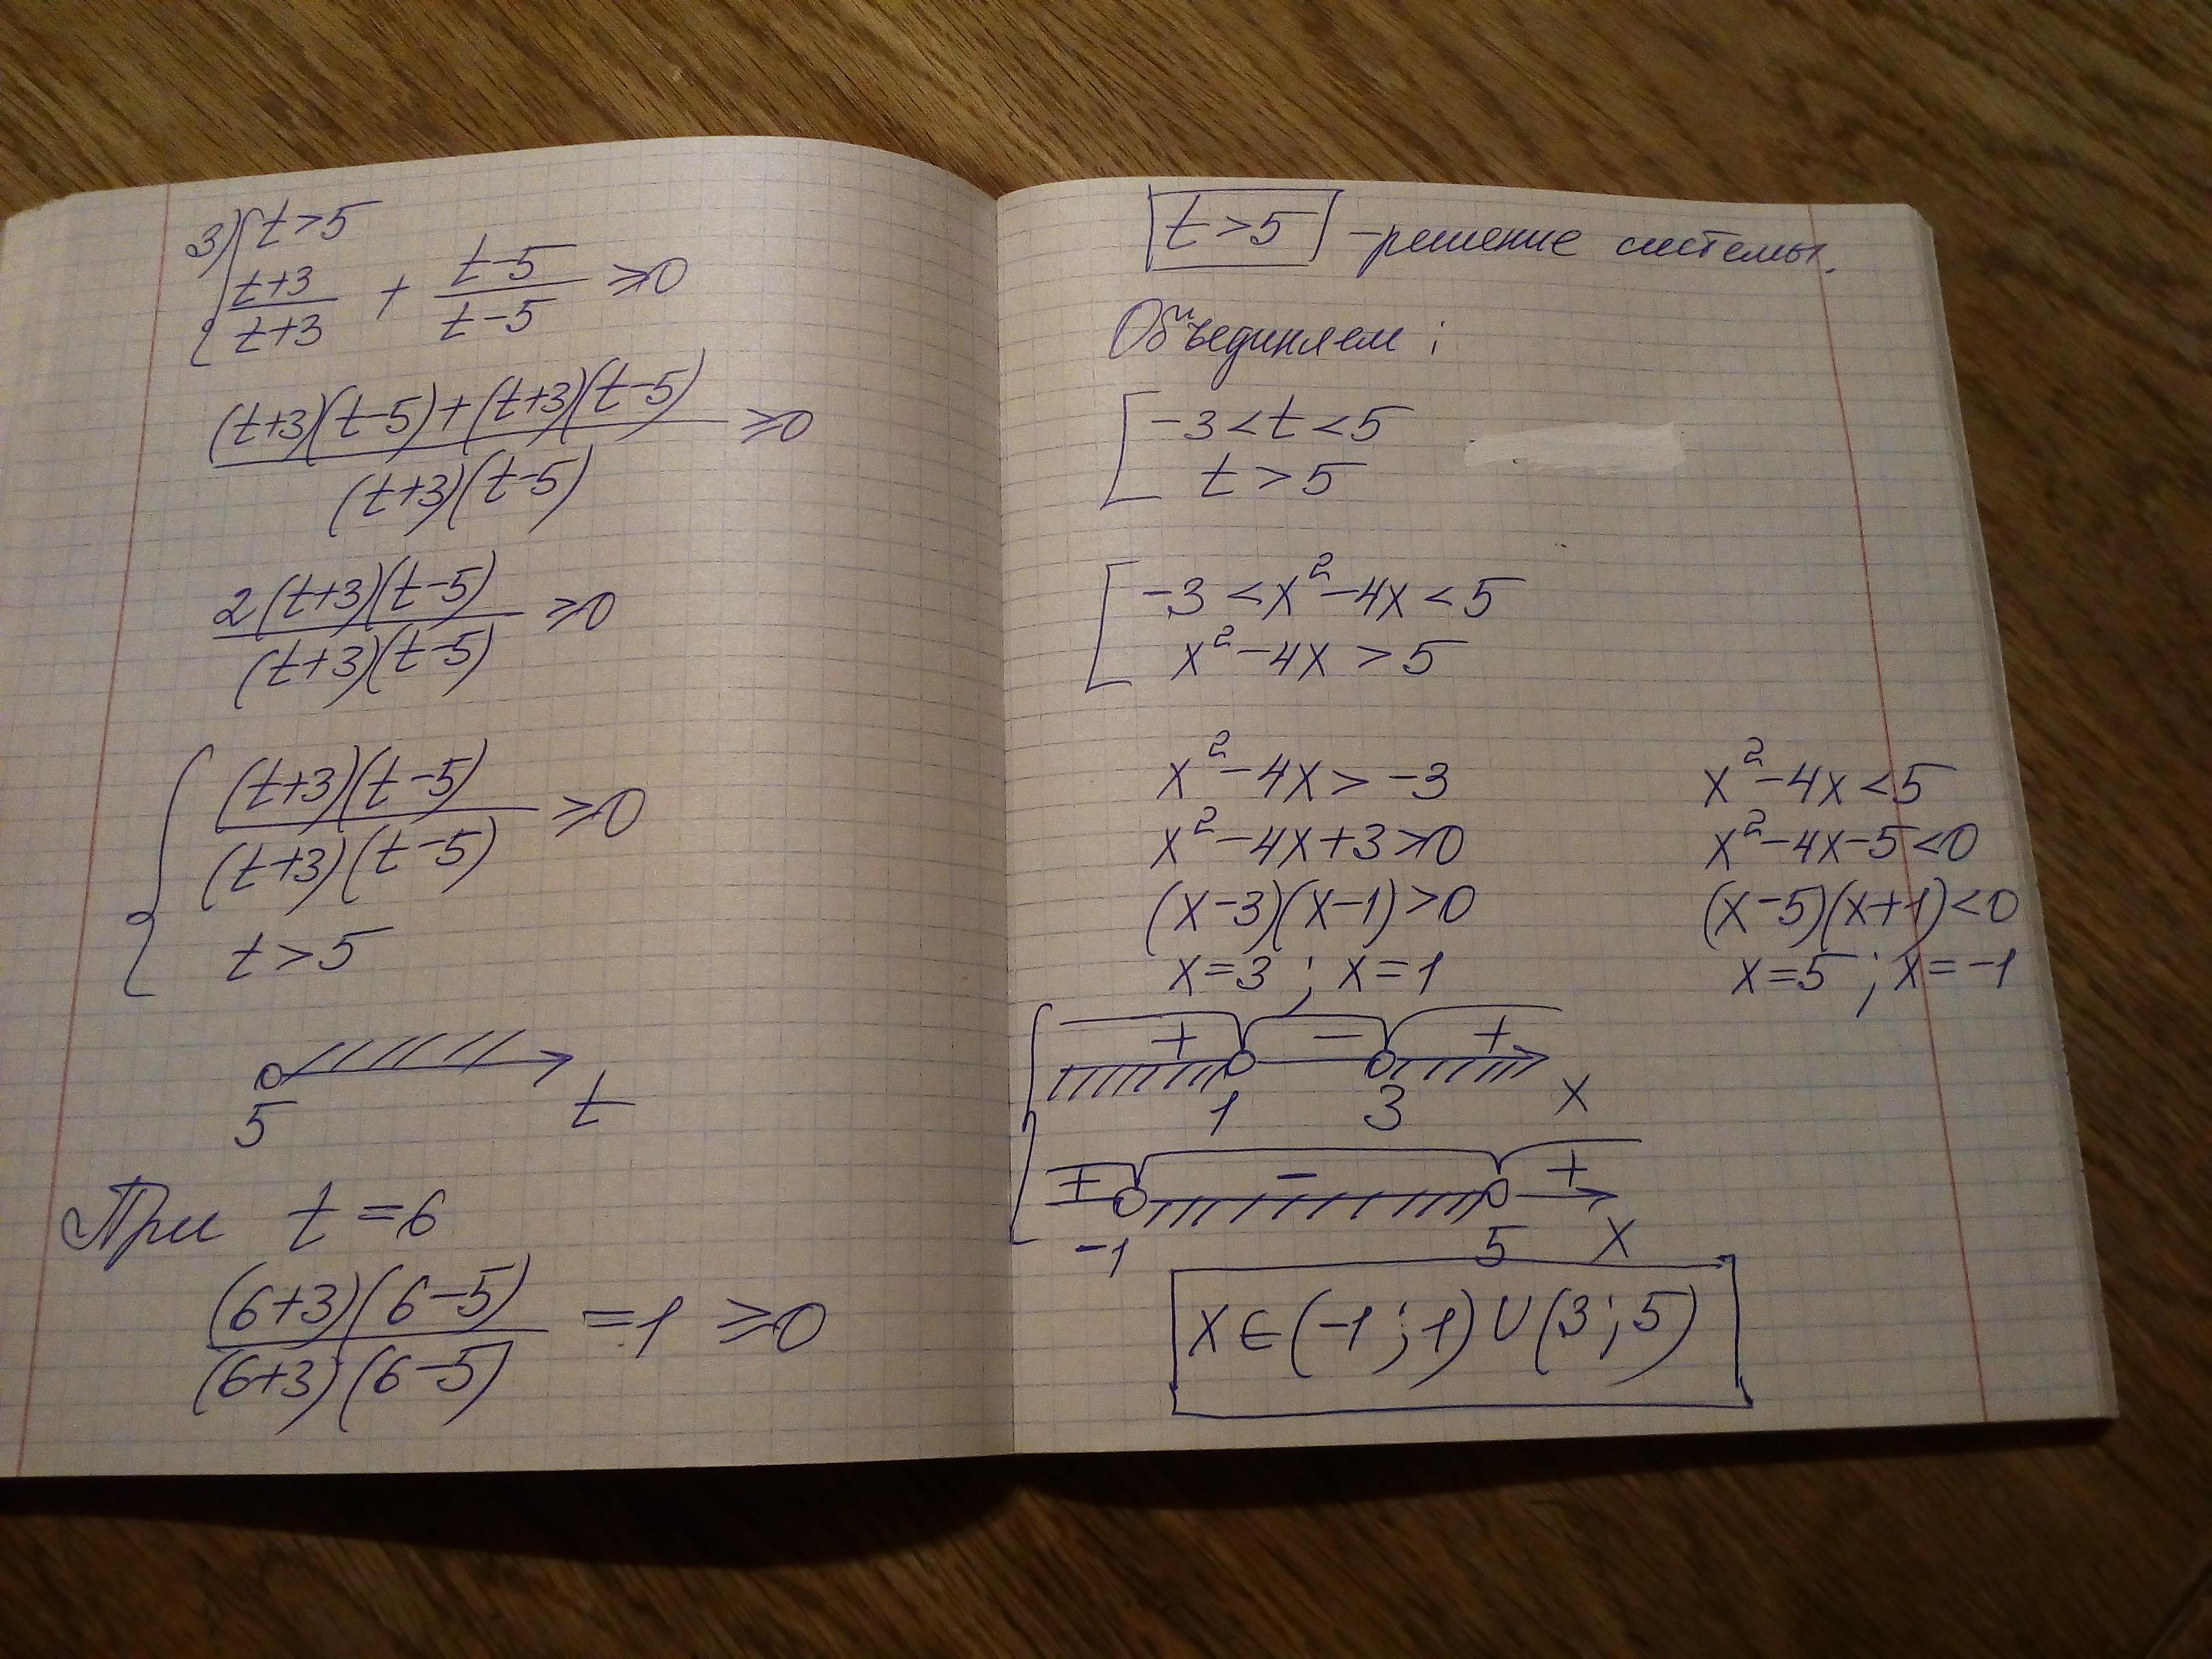 3) { t>5
(t+3)/(t+3) + (t-5)/(t-5) ≥0
((t+3)(t-5)+(t+3)(t-5))/((t+3)(t-5)) ≥0
(2(t+3)(t-5))/((t+3)(t-5)) ≥0
{ ((t+3)(t-5))/((t+3)(t-5)) ≥0
t>5
5 t
При t=6
((6+3)(6-5))/((6+3)(6-5)) =1 ≥0
t>5 -решение системы.
Объединяем:
[ -3<t<5
t>5
[ -3<x²-4x<5
x²-4x>5
x²-4x>-3
x²-4x+3>0
(x-3)(x-1)>0
x=3; x=1
x²-4x<5
x²-4x-5<0
(x-5)(x+1)<0
x=5; x=-1
{ + - +
1 3 x
+ - +
-1 5 x
x∈(-1;1)∪(3;5)